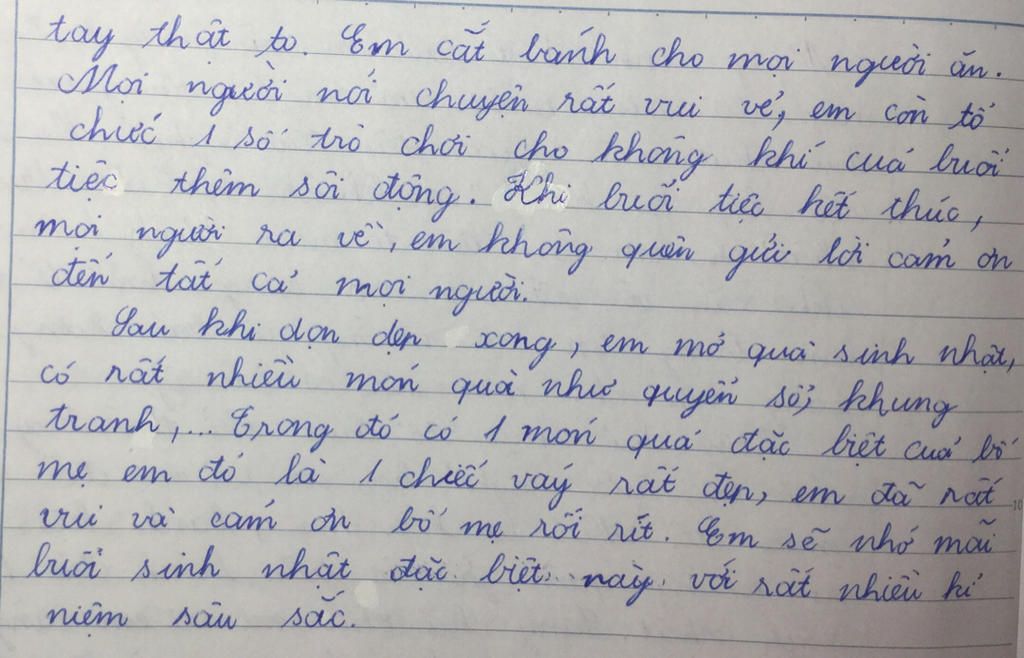 tay thật to. Em cắt bánh cho mọi người ăn.
Mọi người nói chuyện rất vui vẻ, em còn tổ
chức 1 số trò chơi cho không khí cuả buổi
tiệc thêm sôi động. Khi buổi tiệc kết thúc,
mọi người ra về, em không quên gửi lời cảm ơn
đến tất cả mọi người.
Sau khi dọn dẹp xong, em mở quà sinh nhật,
có rất nhiều món quà như quyển sổ, khung
tranh,... Trong đó có 1 món quà đặc biệt cuả bố
mẹ em đó là 1 chiếc váy rất đẹp, em đã rất
vui và cảm ơn bố mẹ rối rít. Em sẽ nhớ mãi
buổi sinh nhật đặc biệt này với rất nhiều kỉ
niệm sâu sắc.
10